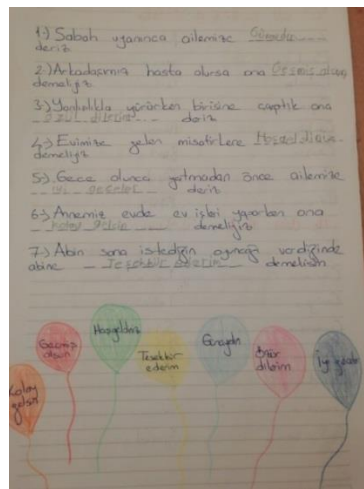 1-) Sabah uyanınca ailemize Günaydın
deriz
2-) Arkadaşımız hasta olursa ona Geçmiş olsun
demeliyiz
3-) Yanlışlıkla yürürken birisine çarptık ona
özür dilerim deriz
4-) Evimize gelen misafirlere Hoşgeldiniz
demeliyiz
5-) Gece olunca yatmadan önce ailemize
iyi geceler deriz
6-) Annemiz evde ev işleri yaparken ona
kolay gelsin demeliyiz
7-) Abin sana istediğin oyuncağı verdiğinde
abine Teşekkür ederim demelisin
Kolay
gelsin
Geçmiş
olsun
Hoşgeldiniz
Teşekkür
ederim
Günaydın
Özür
dilerim
İyi geceler